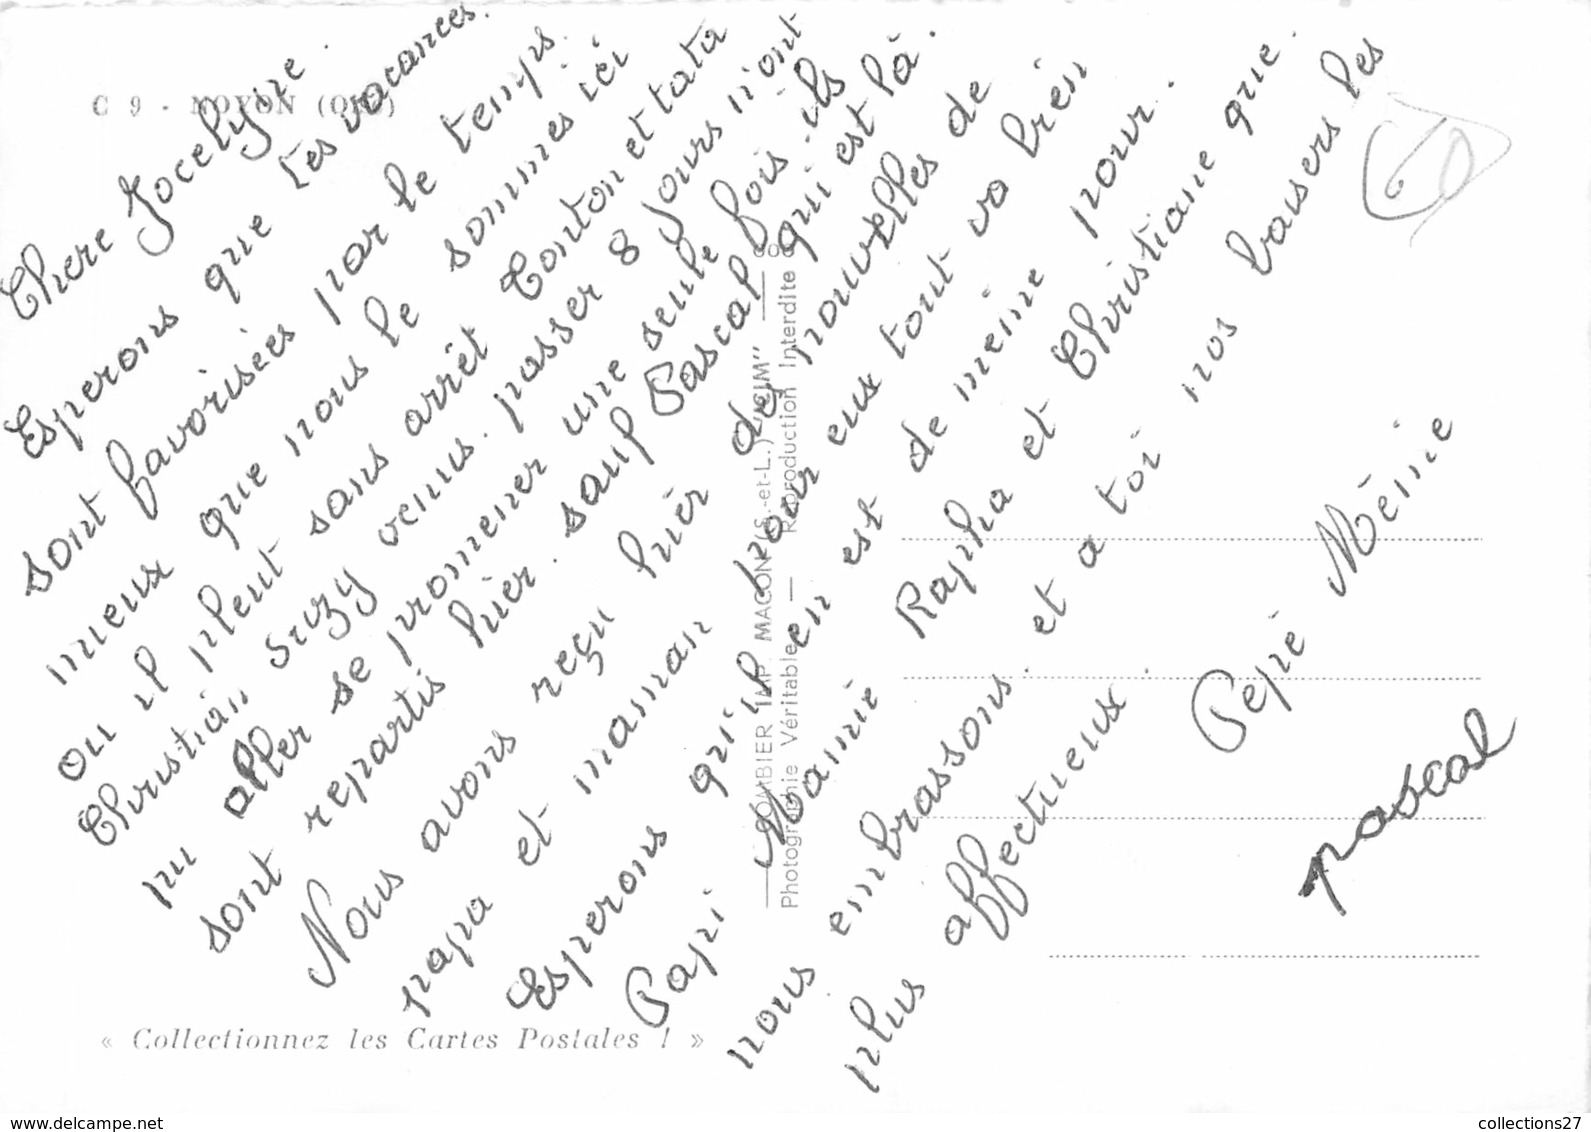 C 9 - NOYON (OISE)
Chere Jocelyne.
Esperons que tes vacances.
sont favorisées par le temps.
mieux que nous le sommes ici
ou il pleut sans arrêt Tonton et tata
Christian Suzy venus. passer 8 jours n'ont
pu aller se promener une seule fois. ils
sont repartis hier. sauf Pascal qui est là.
Nous avons reçu hier des nouvelles de
papa et maman pour eux tout va bien
Esperons qu'il en est de meme pour.
Papi Mamie Rapha et Christiane que.
nous embrassons. et a toi nos baisers les
plus affectueux.
Pepé Mémie
pascal
COMBIER IMP. MACON (S.-et-L.) "CIM"
Photographie Véritable — Reproduction Interdite
« Collectionnez les Cartes Postales ! »
60
www.delcampe.net
collections27